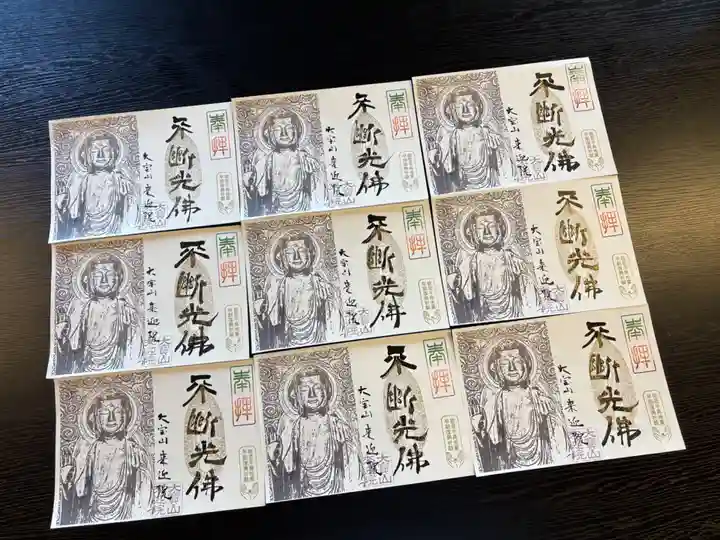 奉拝
不断光佛
大宝山 来迎院
奉拝
不断光佛
大宝山 来迎院
奉拝
不断光佛
大宝山 来迎院
奉拝
不断光佛
大宝山 来迎院
奉拝
不断光佛
大宝山 来迎院
奉拝
不断光佛
大宝山 来迎院
奉拝
不断光佛
大宝山 来迎院
奉拝
不断光佛
大宝山 来迎院
奉拝
不断光佛
大宝山 来迎院